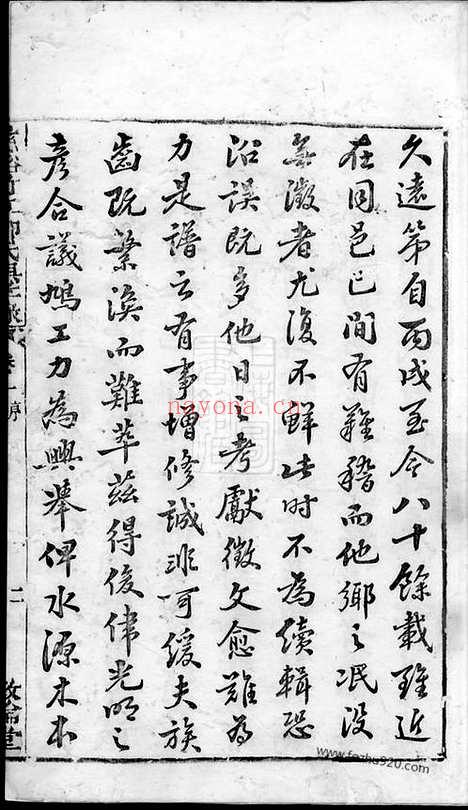 久遠第自丙戌至今八十餘載雖近
在同邑已間有難稽而他鄉之泯没
無徵者尤復不鮮此時不為續輯恐
沿誤既多他日之考獻徵文愈難為
力是譜云有事增修誠非可緩夫族
齒既繁渙而難萃茲得俊偉光明之
彥合議鳩工力為興舉俾水源木本
卷一序
二
敦倫堂
nayona.cn
www.fozhu920.com